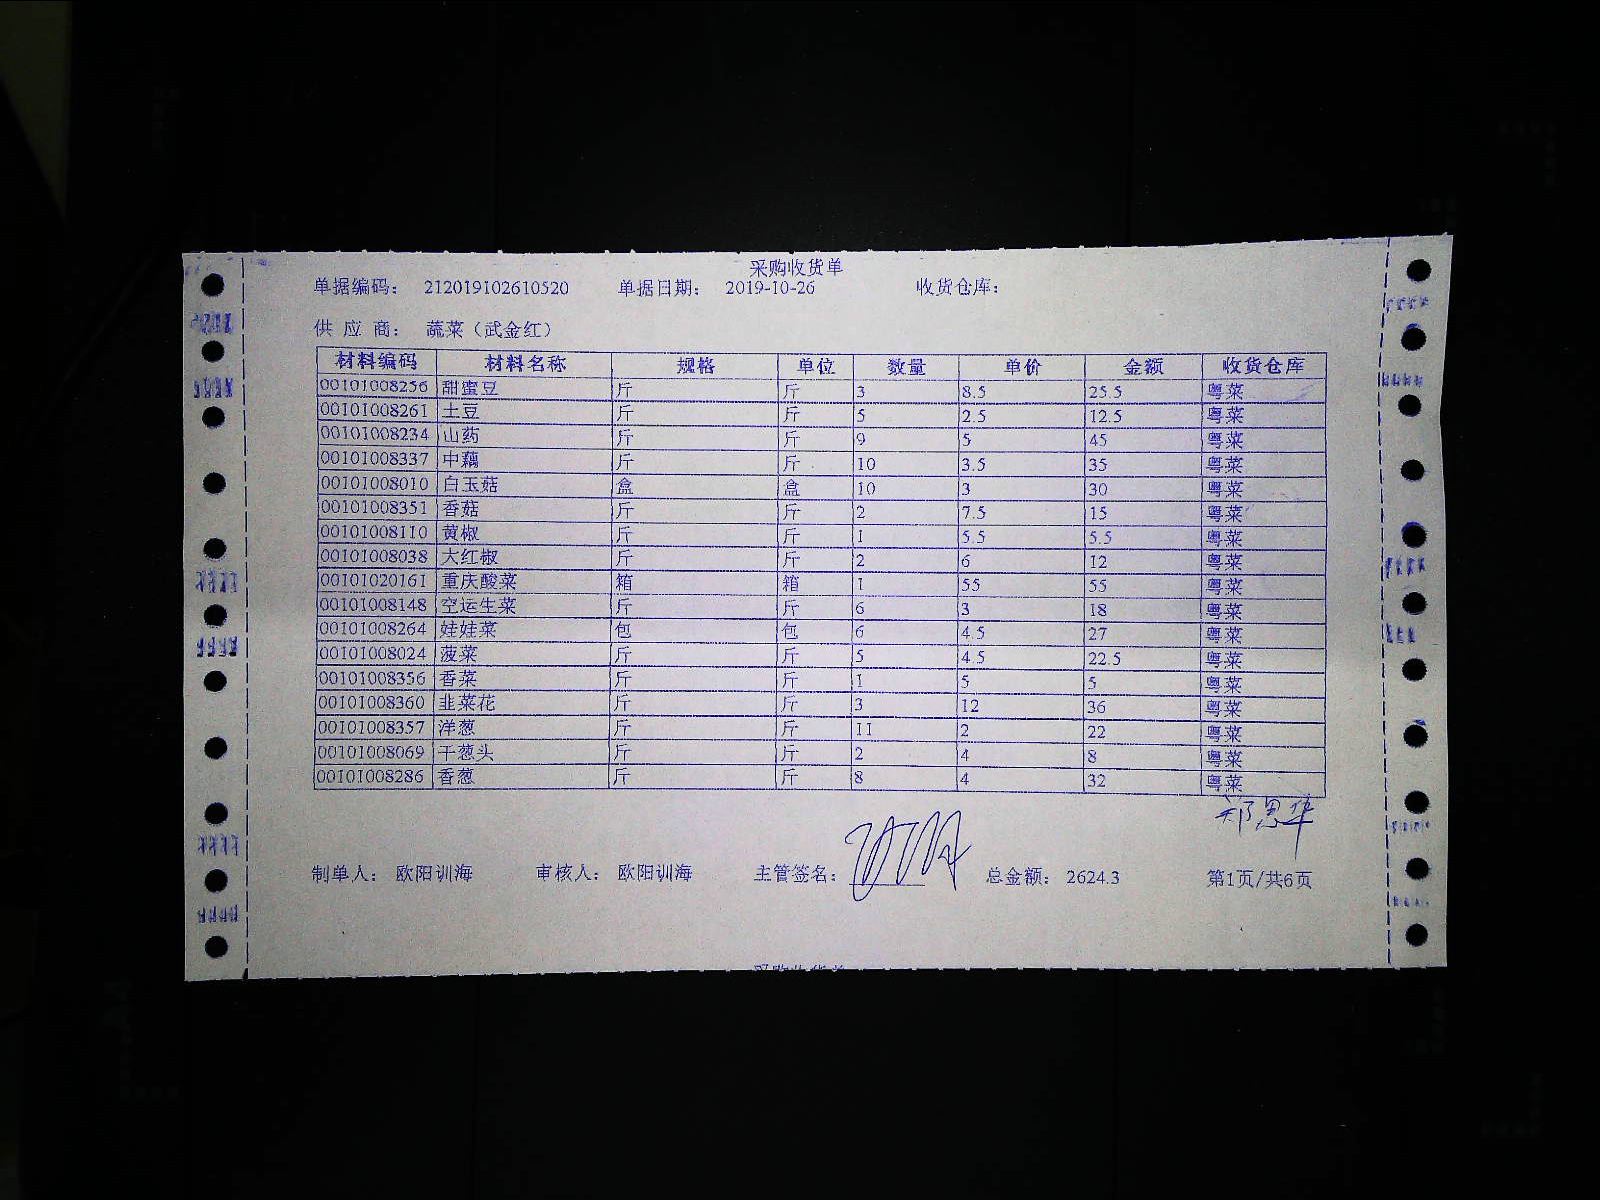 采购收货单
单据编码： 212019102610520 单据日期： 2019-10-26 收货仓库：
供 应 商： 蔬菜（武金红）
材料编码 材料名称 规格 单位 数量 单价 金额 收货仓库
00101008256 甜蜜豆 斤 斤 3 8.5 25.5 粤菜
00101008261 土豆 斤 斤 5 2.5 12.5 粤菜
00101008234 山药 斤 斤 9 5 45 粤菜
00101008337 中藕 斤 斤 10 3.5 35 粤菜
00101008010 白玉菇 盒 盒 10 3 30 粤菜
00101008351 香菇 斤 斤 2 7.5 15 粤菜
00101008110 黄椒 斤 斤 1 5.5 5.5 粤菜
00101008038 大红椒 斤 斤 2 6 12 粤菜
00101020161 重庆酸菜 箱 箱 1 55 55 粤菜
00101008148 空运生菜 斤 斤 6 3 18 粤菜
00101008264 娃娃菜 包 包 6 4.5 27 粤菜
00101008024 菠菜 斤 斤 5 4.5 22.5 粤菜
00101008356 香菜 斤 斤 1 5 5 粤菜
00101008360 韭菜花 斤 斤 3 12 36 粤菜
00101008357 洋葱 斤 斤 11 2 22 粤菜
00101008069 干葱头 斤 斤 2 4 8 粤菜
00101008286 香葱 斤 斤 8 4 32 粤菜
郑思华
制单人： 欧阳训海 审核人： 欧阳训海 主管签名： 总金额： 2624.3 第1页/共6页